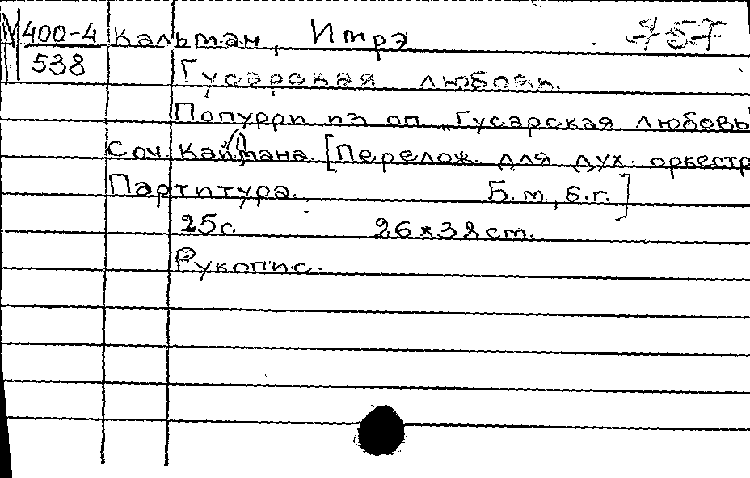 400-4 Кальман, Имрэ 757
538 Гусарская любовь.
Попурри из оп. "Гусарская любовь"
Соч. Кальмана [Перелож. для дух. оркестр
Партитура. Б.м., б.г.]
25с. 26х38 ст.
Рукопис.